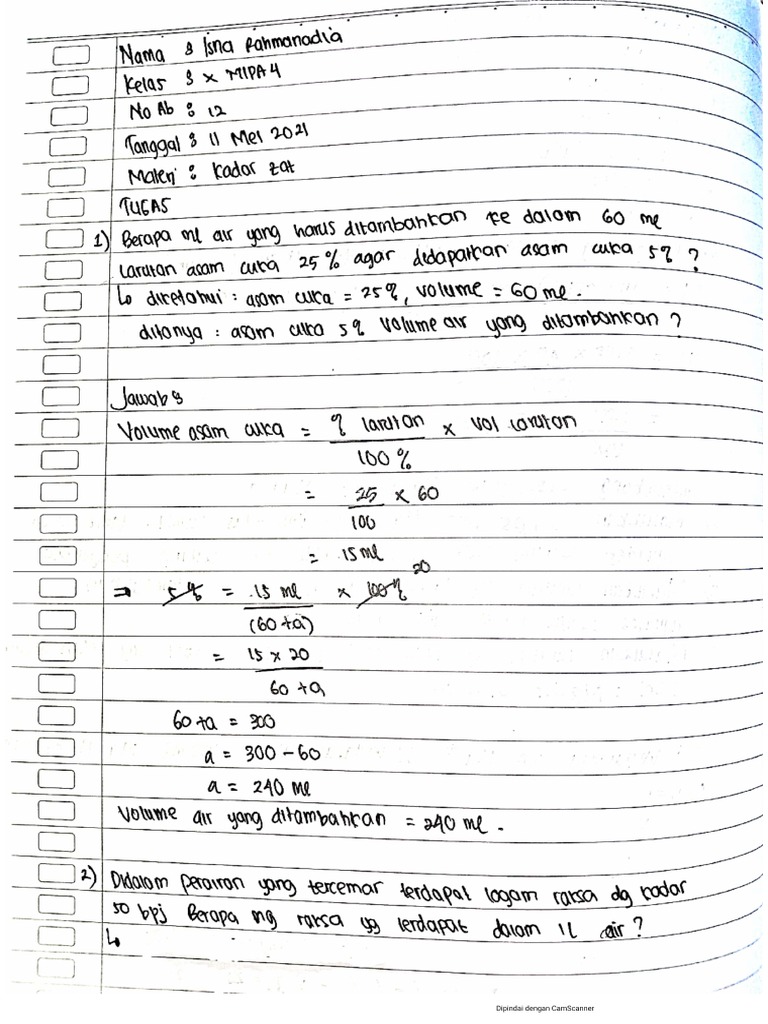 Nama : Isna Rahmanadia
Kelas : X MIPA 4
No Ab : 12
Tanggal : 11 Mei 2021
Materi : Kadar zat
TUGAS
1) Berapa ml air yang harus ditambahkan ke dalam 60 ml
larutan asam cuka 25% agar didapatkan asam cuka 5% ?
↳ diketahui : asam cuka = 25%, volume = 60 ml.
ditanya : asam cuka 5% volume air yang ditambahkan ?
Jawab :
Volume asam cuka = % larutan × vol larutan
100 %
= 25 × 60
100
= 15 ml
⇒ 5% = 15 ml × 100% 20
(60 + a)
= 15 × 20
60 + a
60 + a = 300
a = 300 - 60
a = 240 ml
Volume air yang ditambahkan = 240 ml.
2) Didalam perairan yang tercemar terdapat logam raksa dg kadar
50 bpj Berapa mg raksa yg terdapat dalam 1L air ?
↳
Dipindai dengan CamScanner